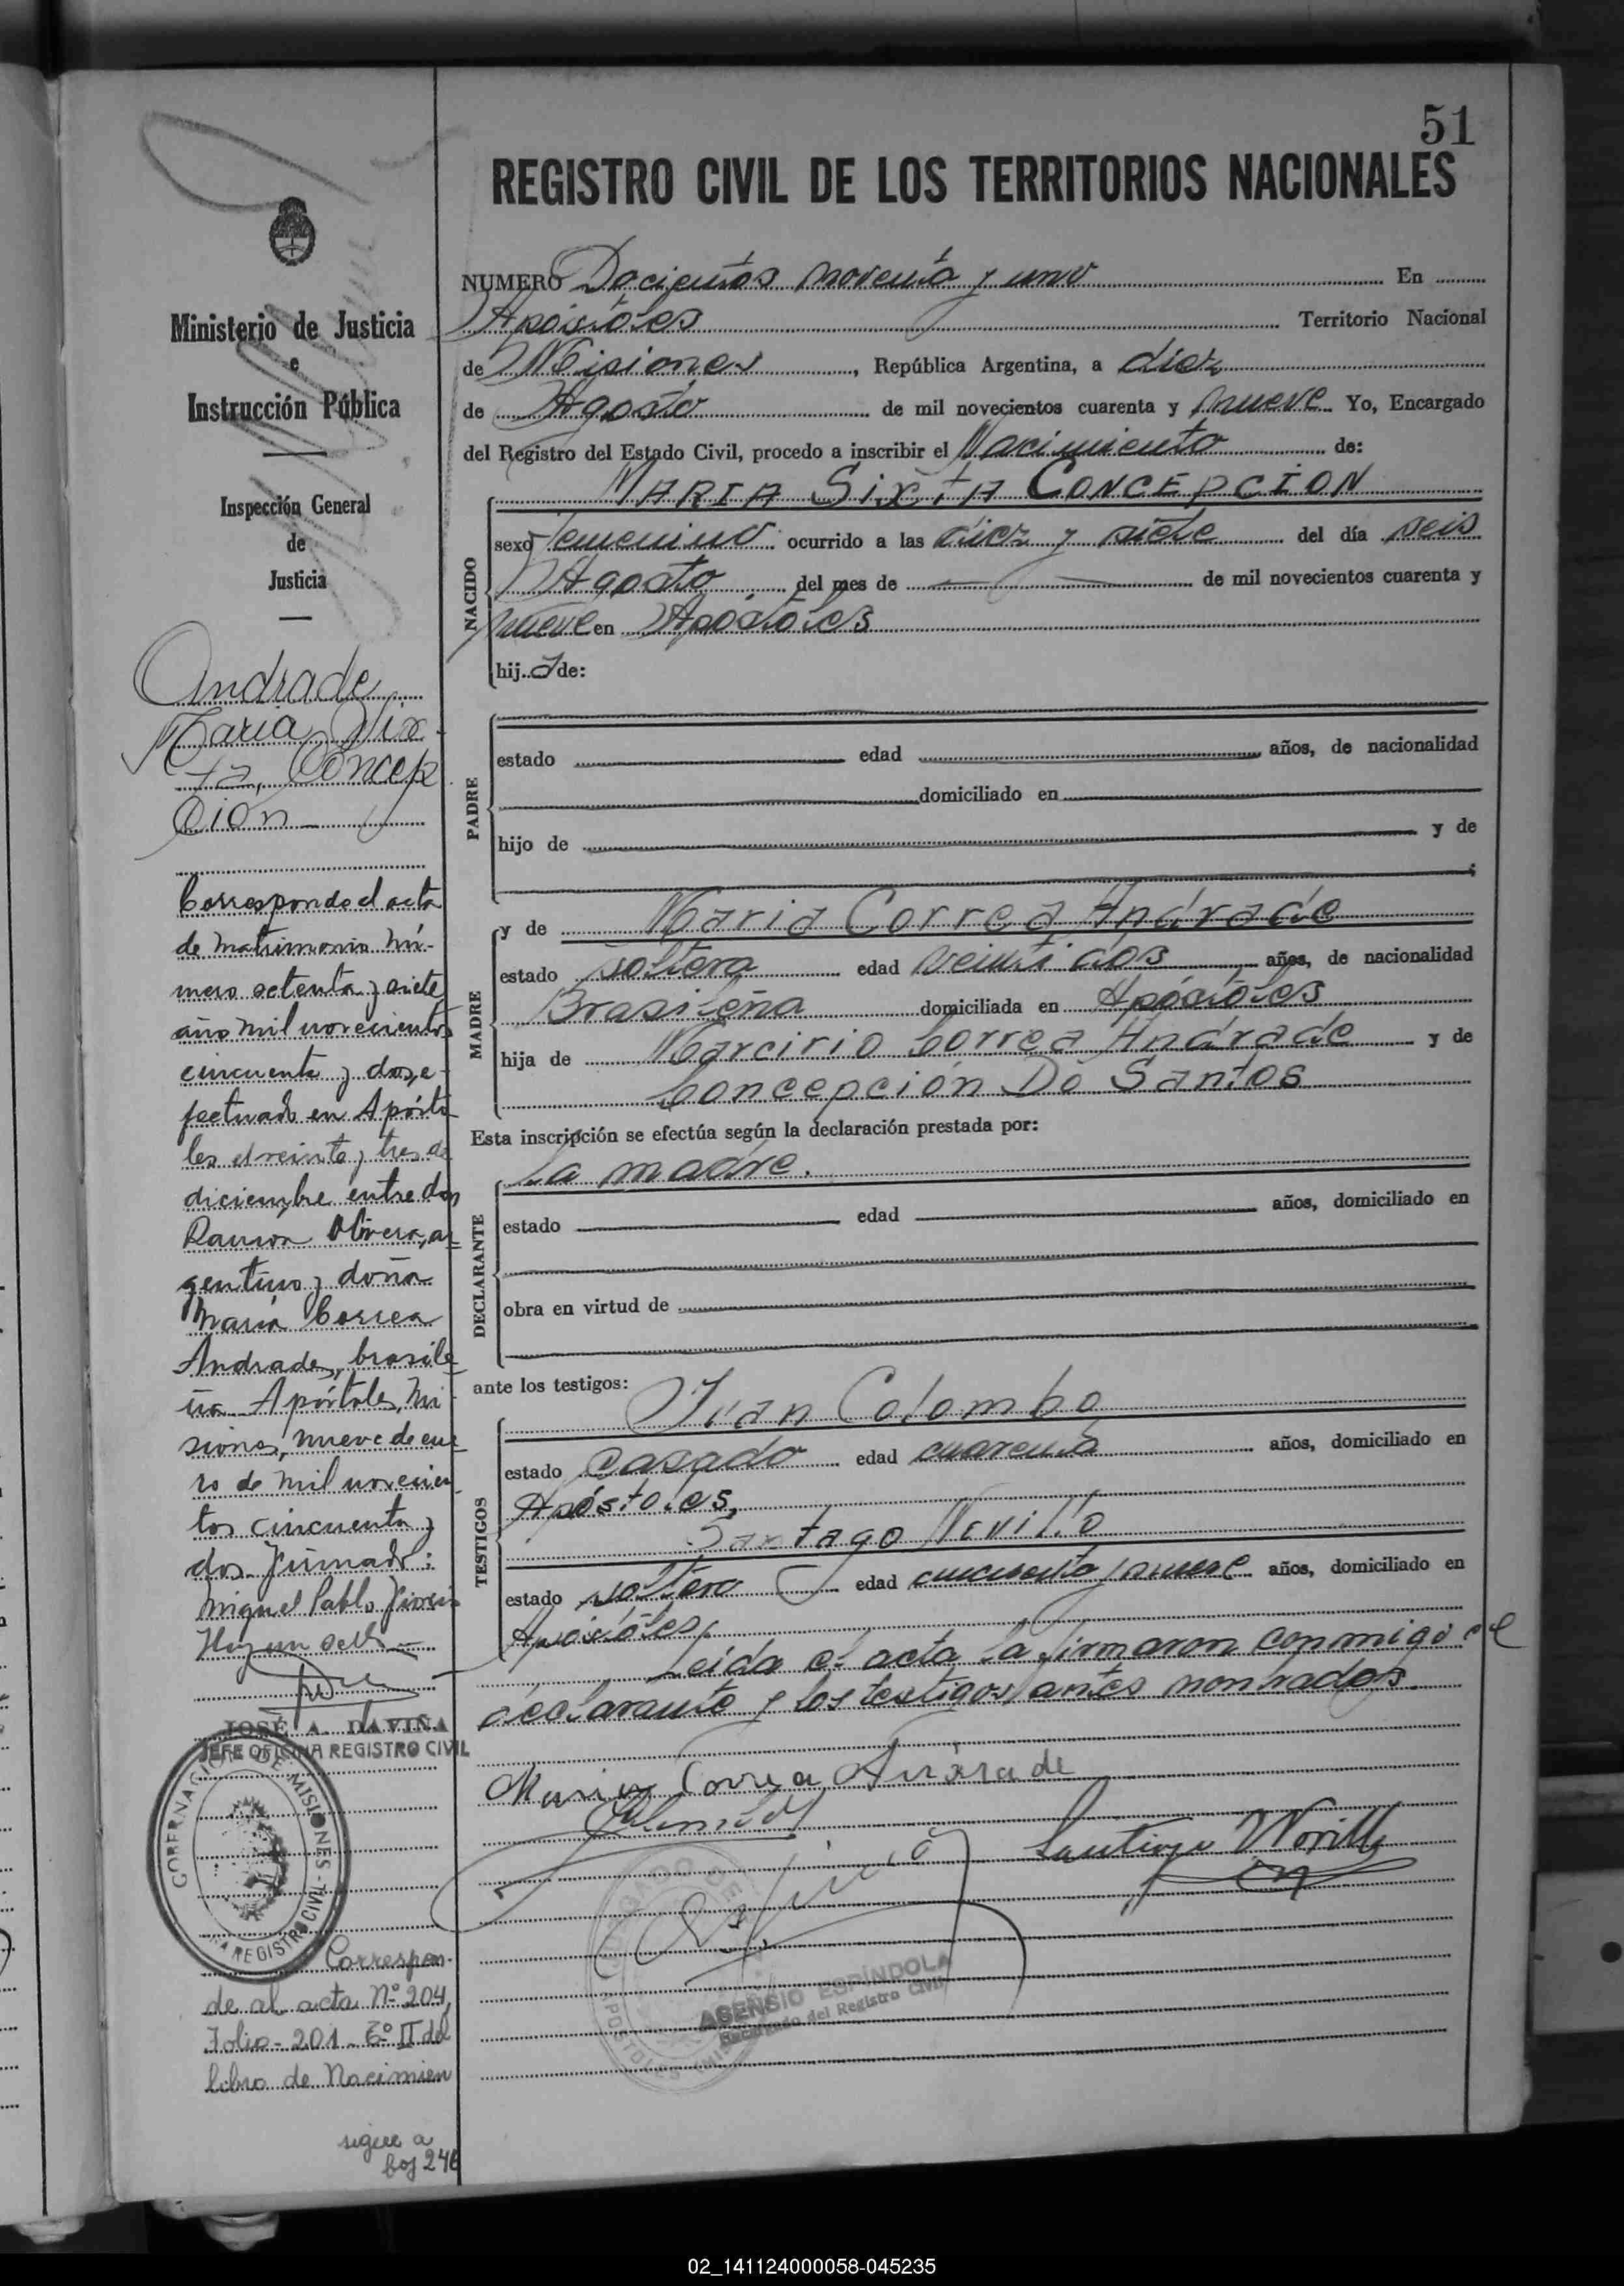 51
REGISTRO CIVIL DE LOS TERRITORIOS NACIONALES
Ministerio de Justicia
e
Instrucción Pública
Inspección General
de
Justicia
Andrade
Maria Six
ta, Concep
cion
Corresponde el acta
de matrimonio nú-
mero setenta y siete
año mil novecientos
cincuenta y dos, e-
fectuado en Apósto
les el veinte y tres de
diciembre entre don
Ramón Olivera, ar
gentino y doña
María Correa
Andrade, brasile
ña Apóstoles, Mi
siones, nueve de ene
ro de mil novecien
tos cincuenta y
dos. Firmado:
Miguel Pablo
Hay un sello
JOSÉ A. DAVIÑA
JEFE OFICINA REGISTRO CIVIL
GOBERNACION DE MISIONES - REGISTRO CIVIL
Correspon-
de al acta Nº 204
Folio - 201 - Tº II del
libro de Nacimien
sigue a
foj 246
NUMERO Docientos noventa y uno En
Apóstoles Territorio Nacional
de Misiones, República Argentina, a diez
de Agosto de mil novecientos cuarenta y nueve Yo, Encargado
del Registro del Estado Civil, procedo a inscribir el Nacimiento de:
NACIDO
MARIA SIXTA CONCEPCION
sexo femenino ocurrido a las diez y siete del día seis
Agosto del mes de — de mil novecientos cuarenta y
nueve en Apóstoles
hij a de:
PADRE
estado edad años, de nacionalidad
domiciliado en
hijo de y de
;
MADRE
y de Maria Correa Andrade
estado soltera edad veinti dos años, de nacionalidad
Brasileña domiciliada en Apóstoles
hija de Marcirio Correa Andrade y de
Concepción Do Santos
Esta inscripción se efectúa según la declaración prestada por:
La madre.
DECLARANTE
estado edad años, domiciliado en
obra en virtud de
ante los testigos:
TESTIGOS
Juan Colombo
estado casado edad cuarenta años, domiciliado en
Apóstoles,
Santiago Novillo
estado soltero edad cincuenta y nueve años, domiciliado en
Apóstoles.
Leida el acta la firmaron conmigo el
declarante y los testigos antes nonbrados.
Maria Correa Andrade
Santiago Novillo
AGENSIO ESPÍNDOLA
Encargado del Registro Civil
02_141124000058-045235